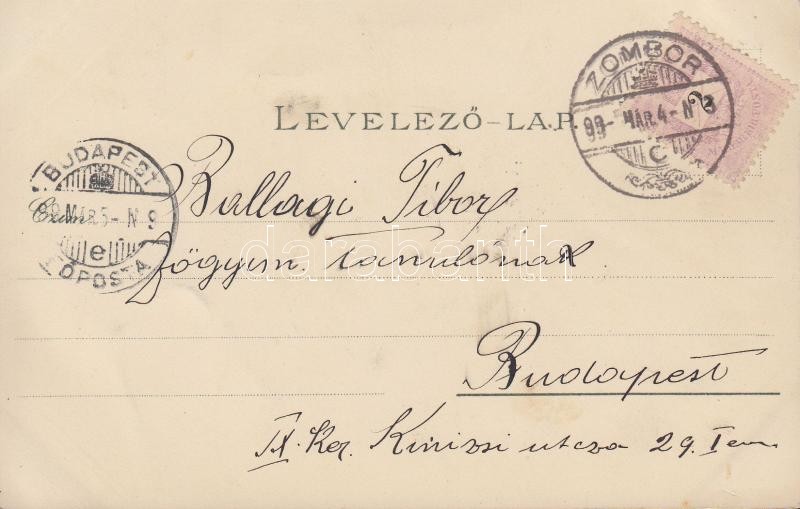 LEVELEZŐ-LAP
ZOMBOR
99 MÁR. 4 - N 3
C
2
BUDAPEST
99 MÁR 5 - N 9
e
FŐPOSTA
Czím
Ballagi Tibor
főgymn. tanulónak
darabanth
Budapest
IX. Ker. Kinizsi utcza 29. I em.